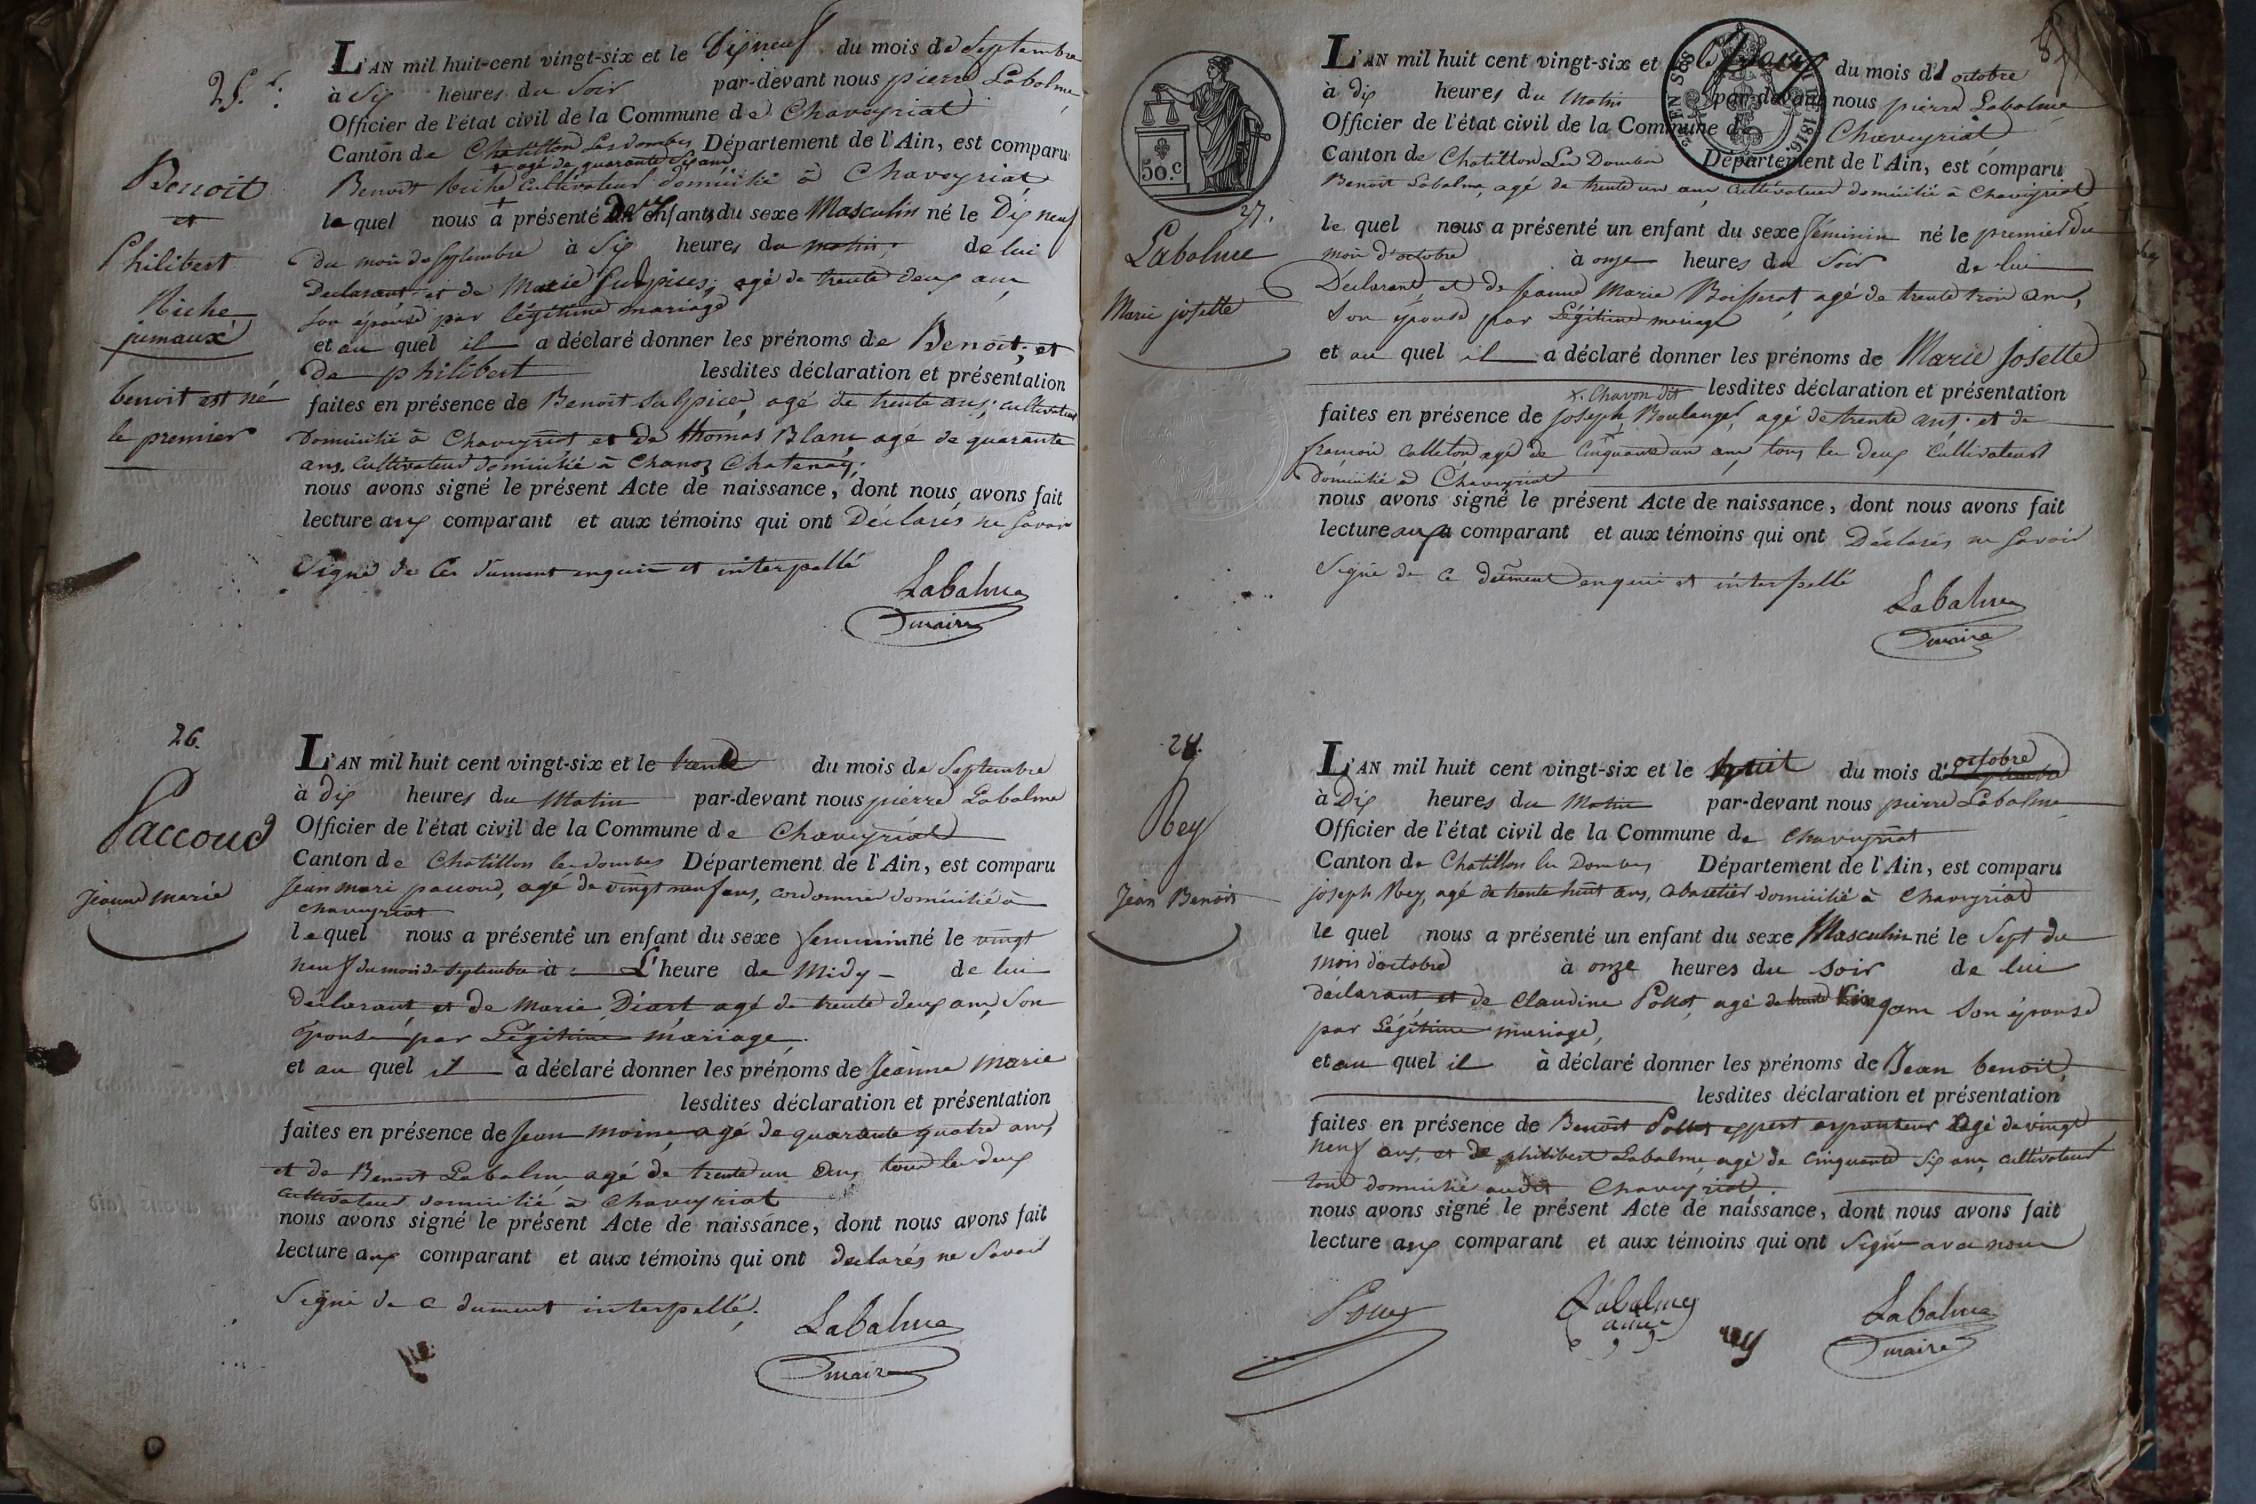 25.e
Benoit
et
Philibert
Niche
jumaux
benoit est né
le premier
L'AN mil huit-cent vingt-six et le Dixneuf du mois de Septembre
à Six heures du Soir par-devant nous pierre Labalme
Officier de l'état civil de la Commune de Chaveyriat
Canton de Chatillon Les dombes Département de l'Ain, est comparu
+ agé de quarante Six ans
Benoit Niche cultivateur domicilié à Chaveyriat
lequel nous a présenté Deux enfants du sexe Masculin né le Dix neuf
du mois de Septembre à Six heures du matin, de lui
Declarant et de Marie Sulpice, agé de trente deux ans
Son épouse par légitime mariage
et au quel il a déclaré donner les prénoms de Benoit, et
de philibert lesdites déclaration et présentation
faites en présence de Benoit Sulpice, agé de trente ans, cultivateur
Domicilié à Chaveyriat et de thomas Blanc agé de quarante
ans. Cultivateur domicilié à Chanoz Chatenay;
nous avons signé le présent Acte de naissance, dont nous avons fait
lecture aux comparant et aux témoins qui ont Déclarés ne Savoir
Signé de Ce dument enquis et interpellé
Labalme
maire
26.
Paccoud
Jeanne marie
L'AN mil huit cent vingt-six et le trente du mois de Septembre
à dix heures du Matin par-devant nous pierre Labalme
Officier de l'état civil de la Commune de Chaveyriat
Canton de Chatillon les dombes Département de l'Ain, est comparu
Jean mari paccoud, agé de vingt neuf ans, cordonnier domicilié à
Chaveyriat
lequel nous a présenté un enfant du sexe feminin né le vingt
neuf du mois de Septembre à L'heure de Midy de lui
déclarant et de Marie Diart agé de trente deux ans, Son
épouse par Légitime mariage.
et au quel il à déclaré donner les prénoms de Jeanne marie
lesdites déclaration et présentation
faites en présence de Jean moine, agé de quarante quatre ans,
et de Benoit Labalme agé de trente un ans, tous les deux
cultivateur domicilié à Chaveyriat
nous avons signé le présent Acte de naissance, dont nous avons fait
lecture aux comparant et aux témoins qui ont declarés ne Savoir
Signé de Ce dument interpellé,
Labalme
maire
50.c
EN SUS
DE 1816.
27.
Labalme
Marie josette
L'AN mil huit cent vingt-six et le du mois d'octobre
à dix heures du Matin par-devant nous pierre Labalme
Officier de l'état civil de la Commune de Chaveyriat
Canton de Chatillon Les Dombes Département de l'Ain, est comparu
Benoit Labalme, agé de trente un ans, cultivateur domicilié à Chaveyriat
le quel nous a présenté un enfant du sexe féminin né le premier du
mois d'octobre à onze heures du Soir de lui
Déclarant, et de Jeanne Marie Boisserat, agé de trente trois ans,
Son épouse par Légitime mariage
et au quel il a déclaré donner les prénoms de Marie Josette
lesdites déclaration et présentation
x. Chavon dit
faites en présence de joseph Boulanger, agé de trente ans. et de
francois Calleton agé de Cinquante un ans, tous les deux Cultivateurs
Domicilié à Chaveyriat
nous avons signé le présent Acte de naissance, dont nous avons fait
lecture aux comparant et aux témoins qui ont Déclarés ne Savoir
Signé de Ce dument enquis et interpellé
Labalme
maire
28.
Rey
Jean Benoit
L'AN mil huit cent vingt-six et le huit du mois d'octobre
à Dix heures du Matin par-devant nous pierre Labalme
Officier de l'état civil de la Commune de Chaveyriat
Canton de Chatillon les Dombes Département de l'Ain, est comparu
joseph Rey, agé de trente huit ans, Cabaretier domicilié à Chaveyriat
le quel nous a présenté un enfant du sexe Masculin né le Sept du
mois d'octobre à onze heures du soir de lui
déclarant et de Claudine Pollet, agé de trente cinq ans Son épouse
par Légitime mariage,
et au quel il à déclaré donner les prénoms de Jean benoit,
lesdites déclaration et présentation
faites en présence de Benoit Pollet expert arpenteur agé de vingt
neuf ans, et de philibert Labalme, agé de Cinquante Six ans, cultivateur
tous domicilié audit Chaveyriat.
nous avons signé le présent Acte de naissance, dont nous avons fait
lecture aux comparant et aux témoins qui ont Signé avec nous
Labalme
ainé
Rey
Labalme
maire